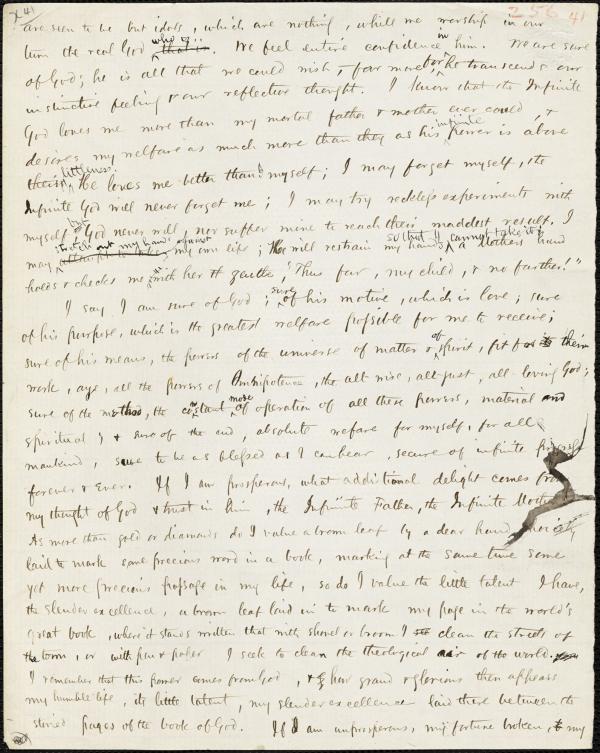 X 41
256 41
are seen to be but idols, which are nothing, while we worship in our
turn the real God who is that is. We feel entire confidence in him. We are sure
of God; he is all that we could wish, & far more, for he transcends our
instinctive feeling & our reflective thought. I know that the Infinite
God loves me more than my mortal father & mother ever could, &
desires my welfare as much more than they as his infinite power is above
their littleness. He loves me better than I myself; I may forget myself, the
Infinite God will never forget me; I may try reckless experiments with
myself, but God never will, nor suffer mine to reach their maddest result. I
may stretch out my hand against my own life; He will restrain my hand so that I cannot take it; a mother's hand
holds & checks me with her gentle "Thus far, my child, & no farther!"
I say I am sure of God; sure of his motive, which is love; sure
of his purpose, which is the greatest welfare possible for me to receive;
sure of his means, the powers of the universe of matter & of spirit, fit for their
work, aye, all the powers of Omnipotence, the all-wise, all-just, all-loving God;
sure of the method, the constant mode of operation of all these powers, material and
spiritual; & sure of the end, absolute welfare for myself, for all
mankind, sure to be as blessed as I can bear, secure of infinite progress
forever & ever. If I am prosperous, what additional delight comes from
my thought of God & trust in him, the Infinite Father, the Infinite Mother.
As more than gold or diamonds do I value a brown leaf by a dear hand
laid to mark some precious word in a book, marking at the same time some
yet more precious passage in my life, so do I value the little talent I have,
the slender excellence, a brown leaf laid in to mark my page in the world's
great book, where it stands written that with shovel or broom I clean the streets of
the town, or with pen & paper I seek to clean the theological air of the world.
I remember that this power comes from God, & how grand & glorious then appears
my humble life, its little talent, my slender excellence laid there between the
storied pages of the book of God. If I am unprosperous, my fortune broken, & my